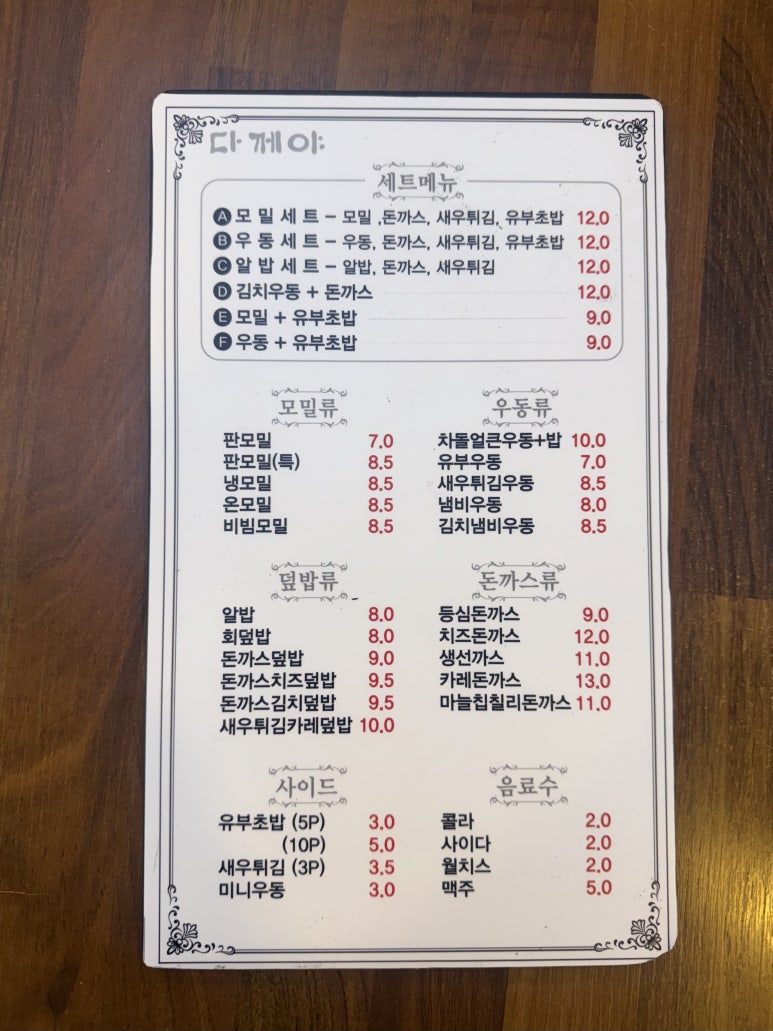 다께야
세트메뉴
A 모밀세트 - 모밀 ,돈까스, 새우튀김, 유부초밥 12.0
B 우동세트 - 우동, 돈까스, 새우튀김, 유부초밥 12.0
C 알밥세트 - 알밥, 돈까스, 새우튀김 12.0
D 김치우동 + 돈까스 12.0
E 모밀 + 유부초밥 9.0
F 우동 + 유부초밥 9.0
모밀류
판모밀 7.0
판모밀(특) 8.5
냉모밀 8.5
온모밀 8.5
비빔모밀 8.5
우동류
차돌얼큰우동+밥 10.0
유부우동 7.0
새우튀김우동 8.5
냄비우동 8.0
김치냄비우동 8.5
덮밥류
알밥 8.0
회덮밥 8.0
돈까스덮밥 9.0
돈까스치즈덮밥 9.5
돈까스김치덮밥 9.5
새우튀김카레덮밥 10.0
돈까스류
등심돈까스 9.0
치즈돈까스 12.0
생선까스 11.0
카레돈까스 13.0
마늘칩칠리돈까스 11.0
사이드
유부초밥 (5P) 3.0
(10P) 5.0
새우튀김 (3P) 3.5
미니우동 3.0
음료수
콜라 2.0
사이다 2.0
웰치스 2.0
맥주 5.0